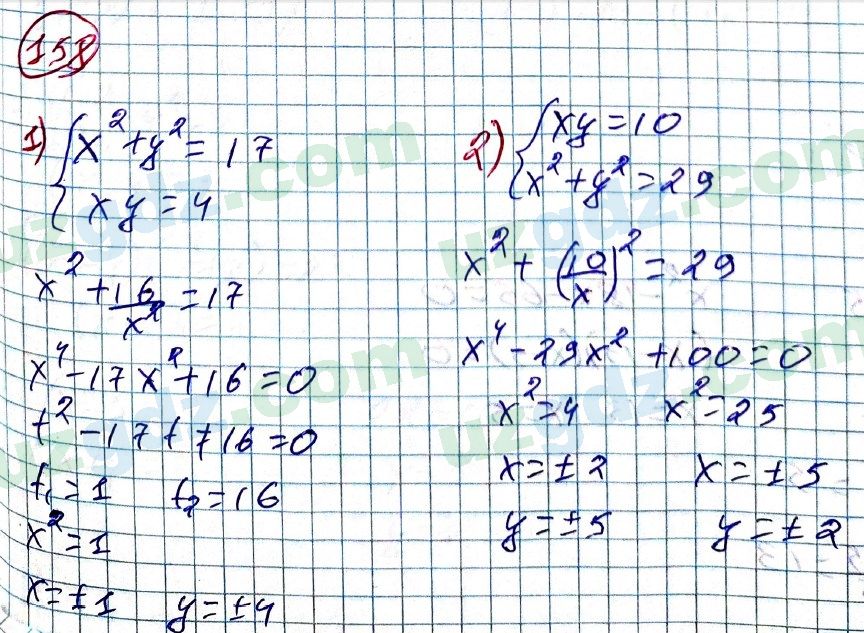 158
1) { x² + y² = 17
xy = 4
x² + 16/x² = 17
x⁴ - 17x² + 16 = 0
t² - 17t + 16 = 0
t₁ = 1 t₂ = 16
x² = 1
x = ±1 y = ±4
2) { xy = 10
x² + y² = 29
x² + (10/x)² = 29
x⁴ - 29x² + 100 = 0
x² = 4 x² = 25
x = ±2 x = ±5
y = ±5 y = ±2
uzgdz.com
uzgdz.com
uzgdz.com
uzgdz.com